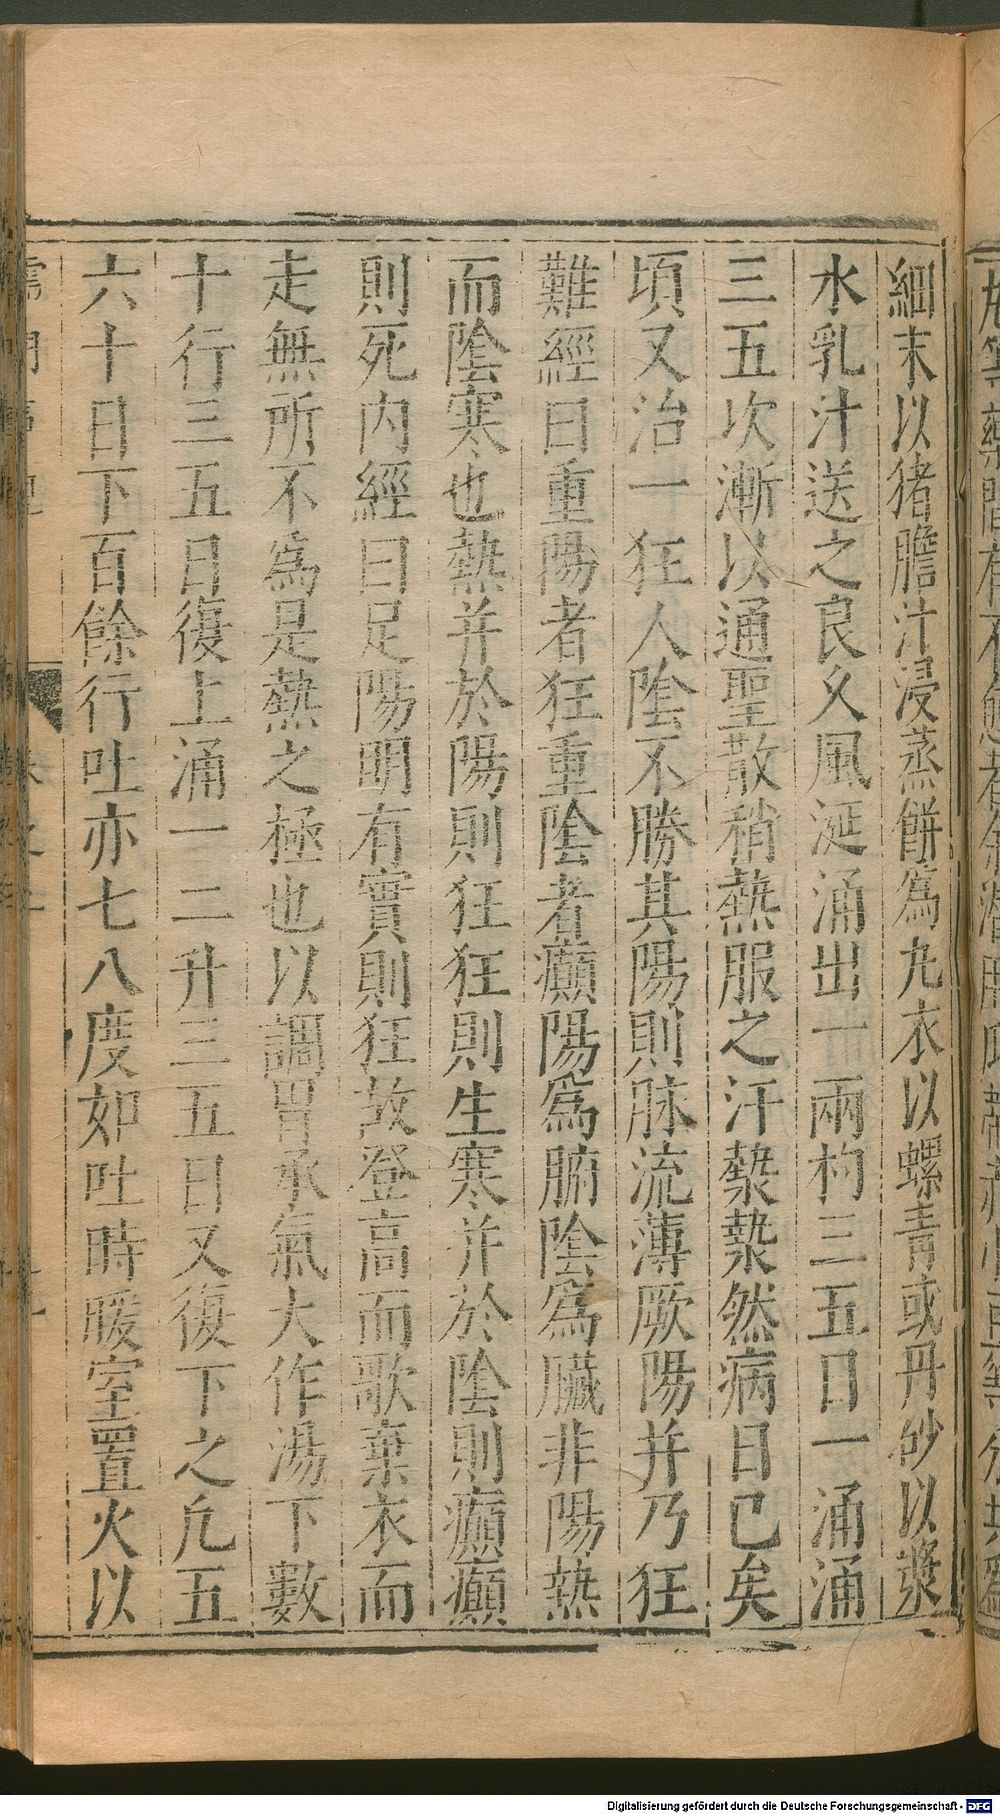 細末以猪膽汁浸蒸餅為丸衣以螺青或丹砂以漿
水乳汁送之良久風涎涌出一兩杓三五日一涌涌
三五次漸以通聖散稍熱服之汗漐漐然病日已矣
頃又治一狂人陰不勝其陽則脉流薄厥陽并乃狂
難經曰重陽者狂重陰者癲陽為腑陰為臟非陽熱
而陰寒也熱并於陽則狂狂則生寒并於陰則癲癲
則死內經曰足陽明有實則狂故登高而歌棄衣而
走無所不為是熱之極也以調胃承氣大作湯下數
十行三五日復上涌一二升三五日又復下之凡五
六十日下百餘行吐亦七八度如吐時暖室置火以
Digitalisierung gefördert durch die Deutsche Forschungsgemeinschaft - DFG